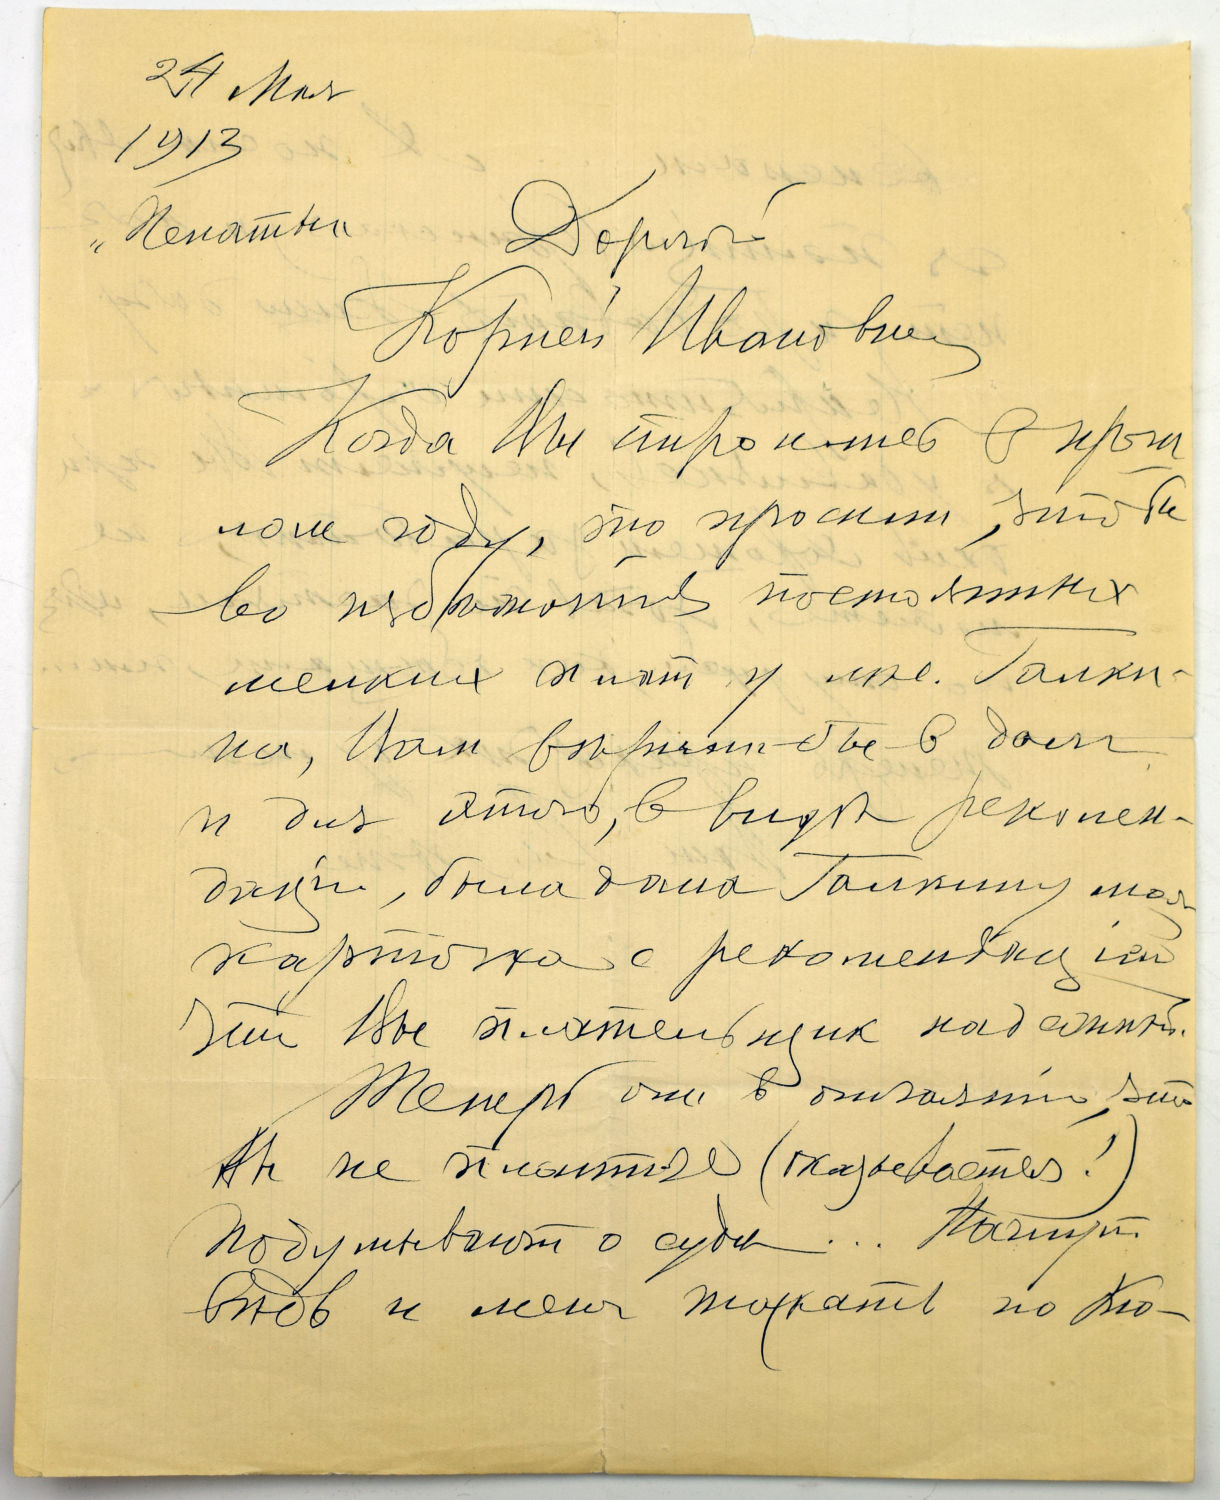 24 Мая
1913
„Пенаты“
Дорогой
Корней Иванович
Когда Вы строились в прош
лом году, то просили, чтобы
во избежание постоянных
мелких плат у мне. Галки-
на, Вам верили бы в долг
и для этого, в виде рекомен-
даціи, была дана Галкину моя
карточка с рекомендаціей
что Вы плательщик надежный.
Теперь они в отчаянии, что
Вы не платите (оказывается!)
Подумывают о суде ... Начнут
вновь и меня таскать по Куо-